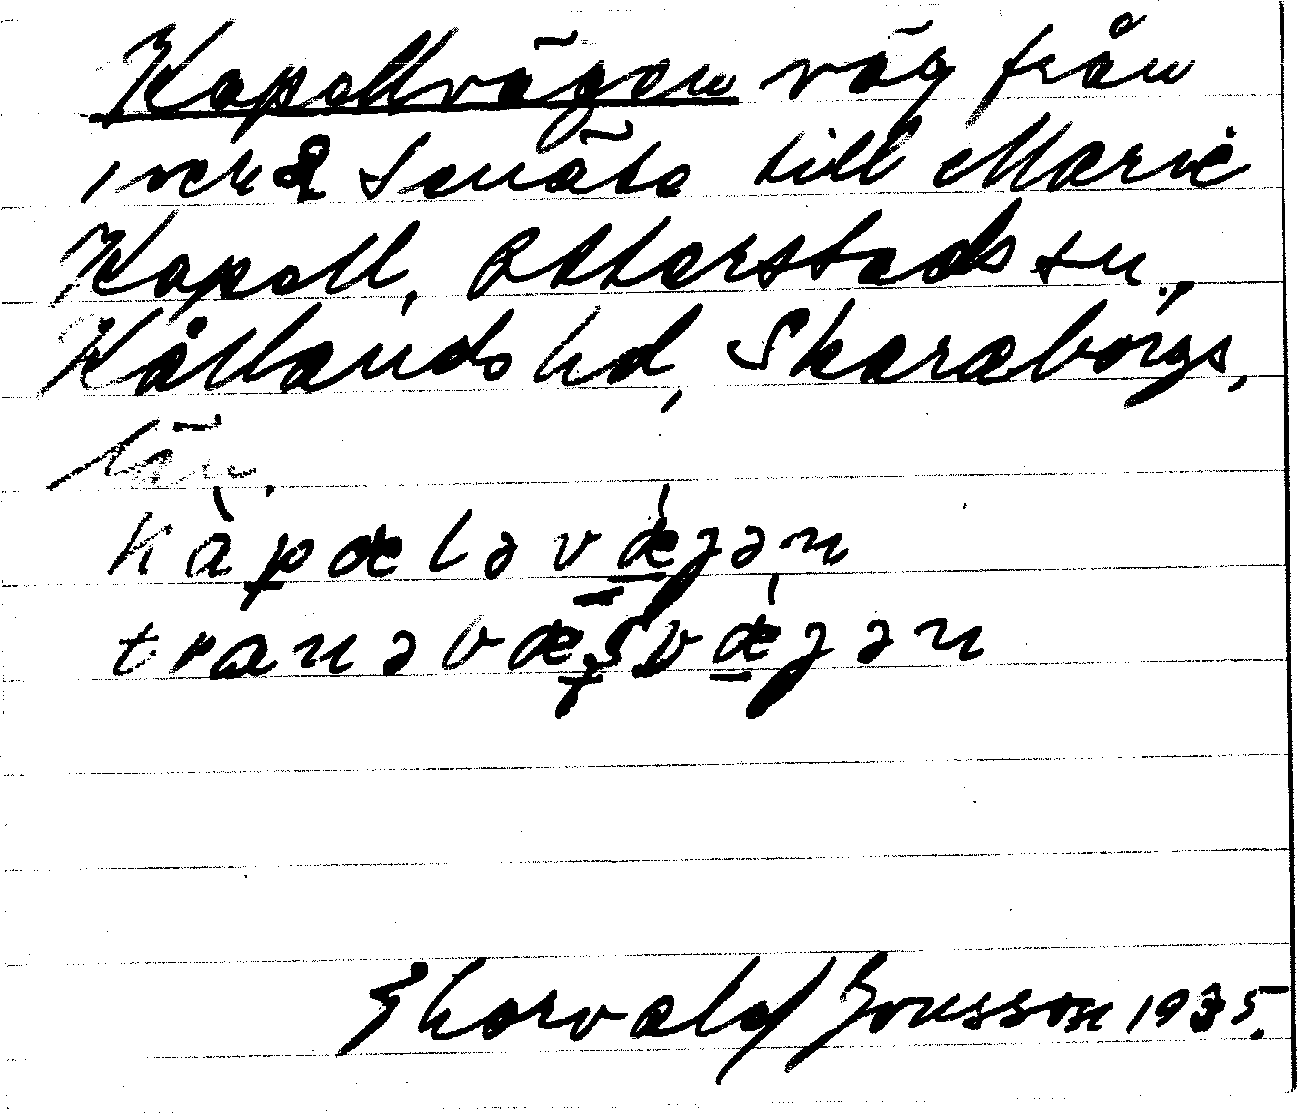 Kapellvägen väg från
Senäte till Marie
Kapell, Otterstads sn.,
Kållands hd, Skaraborgs,
län.
kàpæləvǽjən
tranəbæʂvǽjən
Thorvald Jonsson 1935.